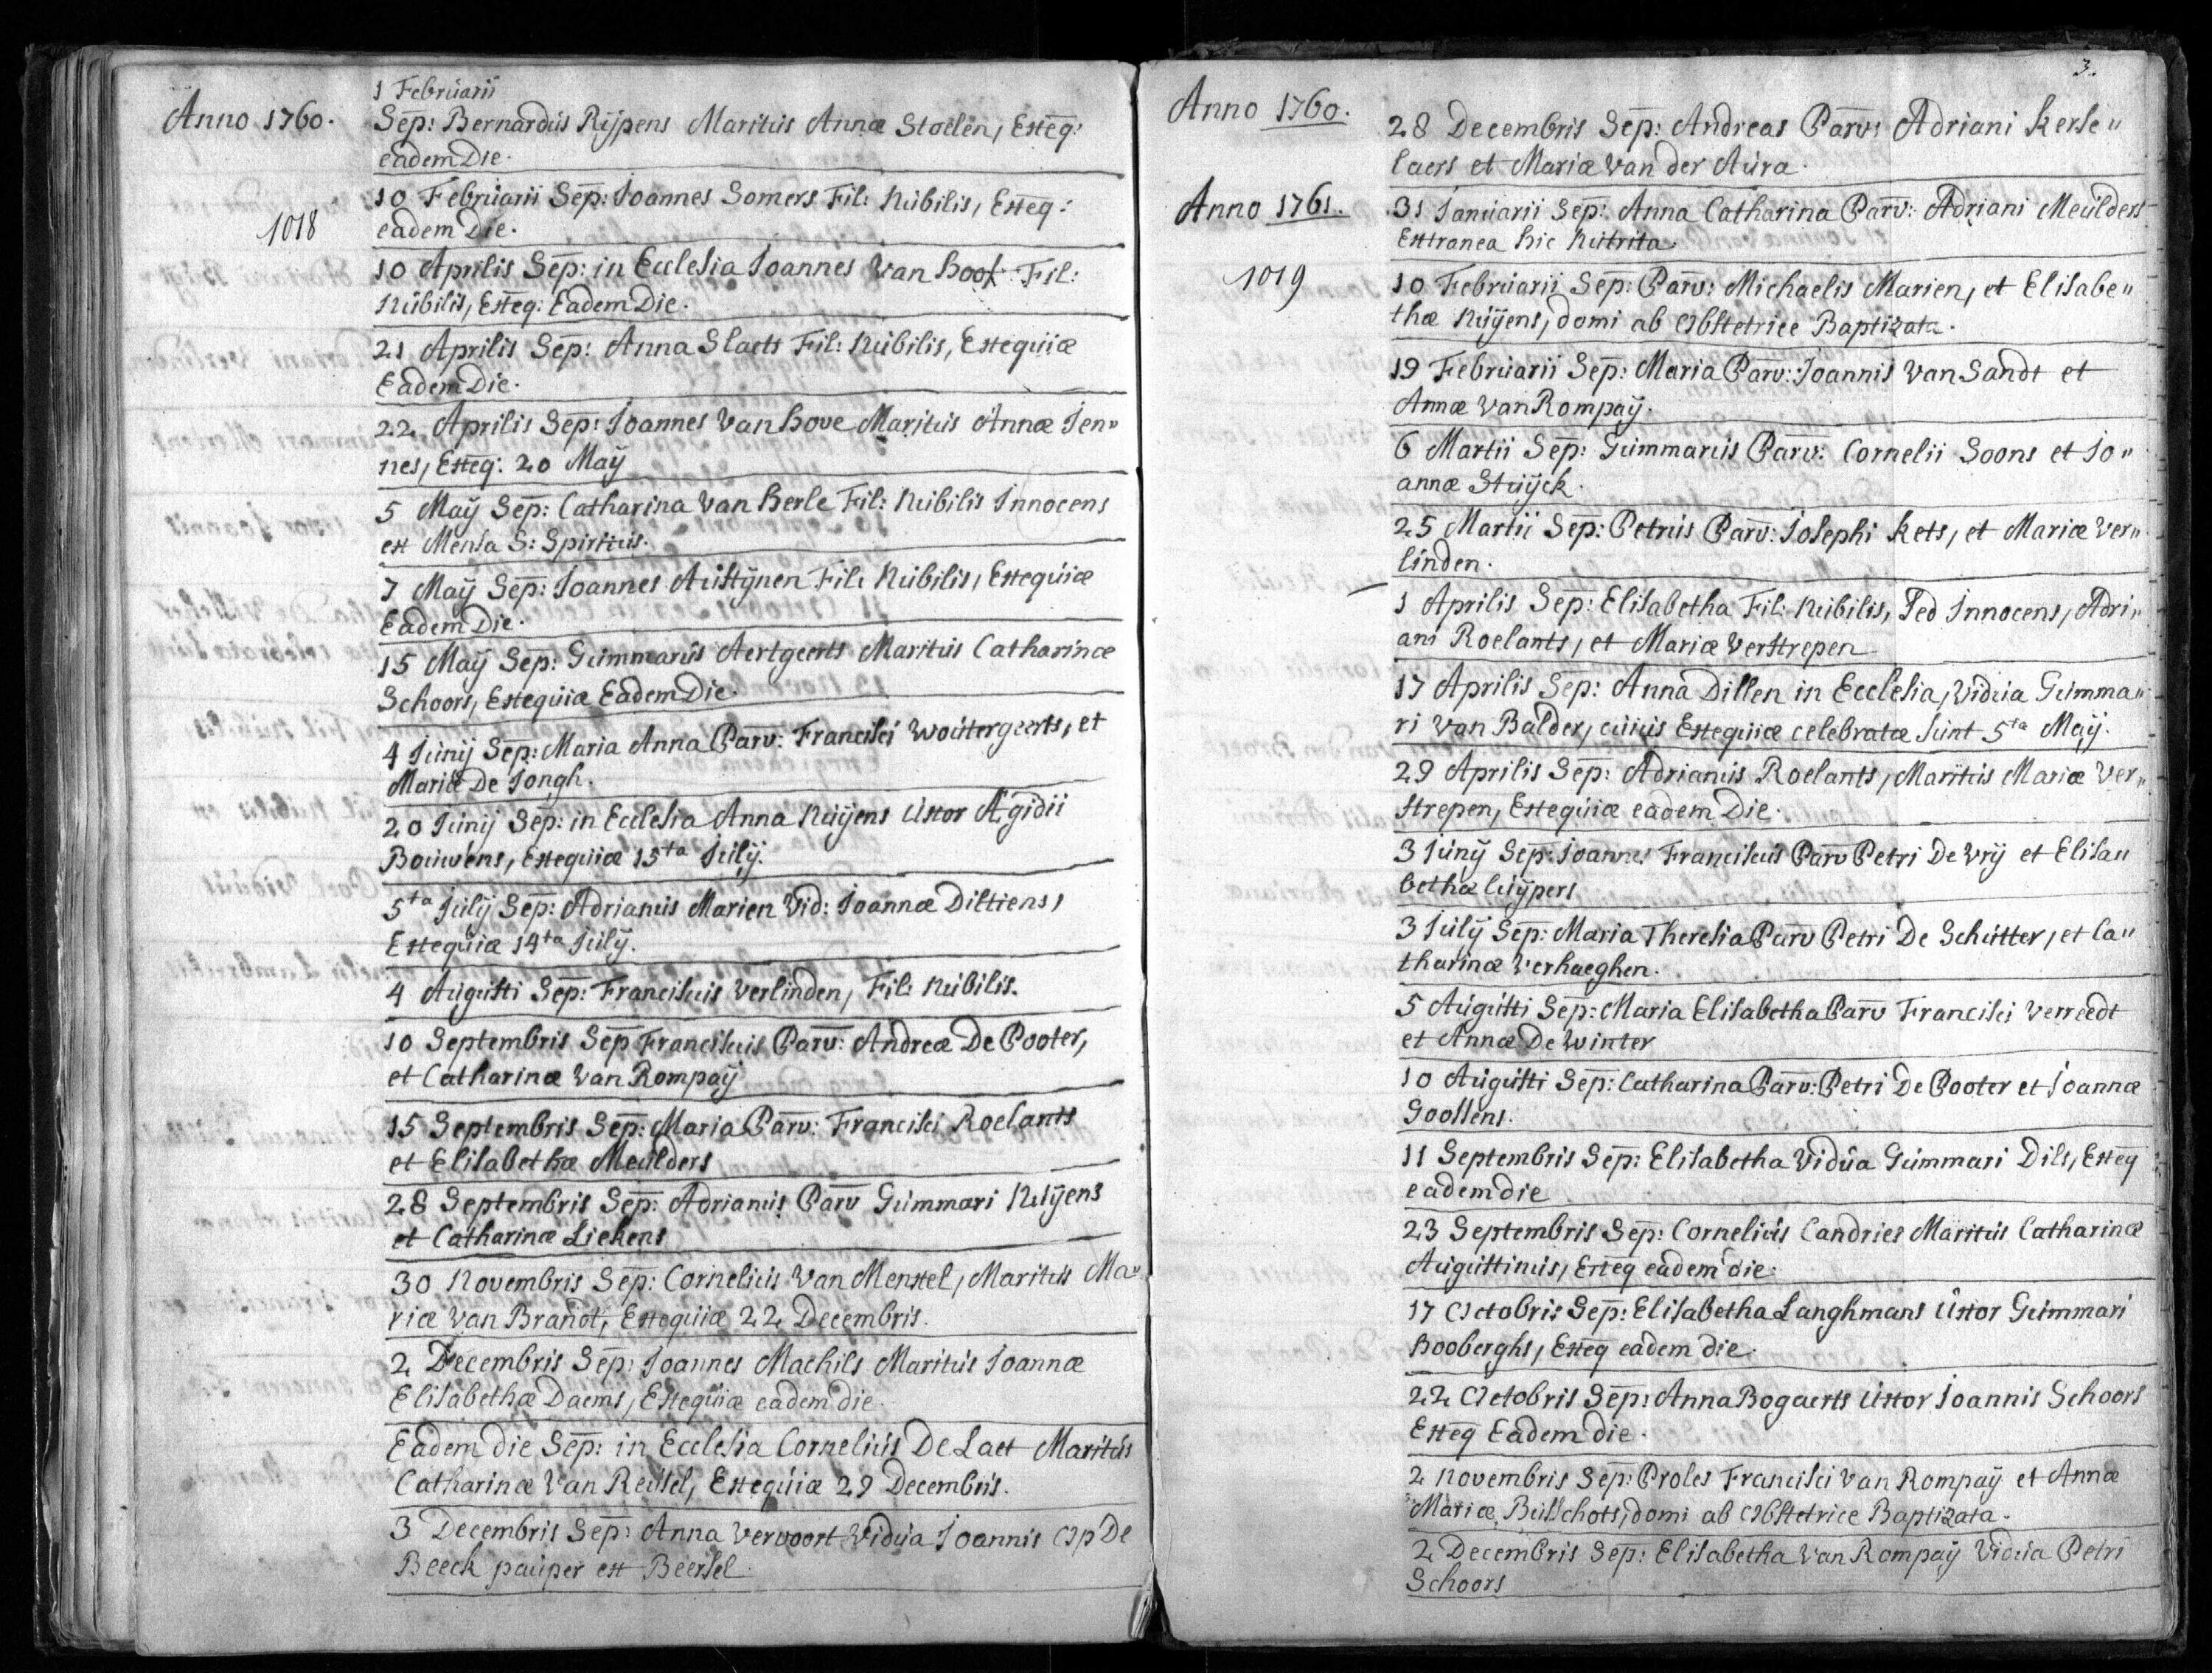 Anno 1760.
1 Februarii
Sep: Bernardus Rijpens Maritus Annæ Stoelen, Exeq:
eadem Die.
10 Februarii Sep: Joannes Somers Fil: Nubilis, Exeq:
eadem Die.
1018
10 Aprilis Sep: in Ecclesia Joannes Van hoof Fil:
Nubilis, Exeq: Eadem Die.
21 Aprilis Sep: Anna Slaets Fil: Nubilis, Exequiæ
Eadem Die.
22 Aprilis Sep: Joannes Van hove Maritus Annæ Jen"
nes, Exeq: 20 Maÿ
5 Maÿ Sep: Catharina Van herle Fil: Nubilis Innocens
ex Mensa S: Spiritus.
7 Maÿ Sep: Joannes Austÿnen Fil: Nubilis, Exequiæ
Eadem Die.
15 Maÿ Sep: Gummarus Aertgeerts Maritus Catharinæ
Schoors, Exequiæ Eadem Die.
4 Junij Sep: Maria Anna Parv: Francisci Woutergeerts, et
Mariæ De Jongh.
20 Junij Sep: in Ecclesia Anna Nuÿens Uxor Ægidii
Bouwens, Exequiæ 15ta Julij.
5ta Julij Sep: Adrianus Marien Vid: Joannæ Diltiens,
Exequiæ 14ta Julij.
4 Augusti Sep: Franciscus Verlinden, Fil: Nubilis.
10 Septembris Sep Franciscus Parv: Andreæ De Pooter,
et Catharinæ Van Rompaÿ
15 Septembris Sep: Maria Parv: Francisci Roelants
et Elisabethæ Meulders
28 Septembris Sep: Adrianus Parv Gummari Nuÿens
et Catharinæ Liekens
30 Novembris Sep: Cornelius Van Menxel, Maritus Ma"
riæ Van Brandt, Exequiæ 22 Decembris.
2 Decembris Sep: Joannes Machils Maritus Joannæ
Elisabethæ Daems, Exequiæ eadem die.
Eadem die Sep: in Ecclesia Cornelius De Laet Maritus
Catharinæ Van Reusel, Exequiæ 29 Decembris.
3 Decembris Sep: Anna Vervoort Vidua Joannis Op De
Beeck pauper ex Beersel
3.
Anno 1760.
28 Decembris Sep: Andreas Parv: Adriani Kerse"
laers et Mariæ Van der Aura.
Anno 1761.
31 Januarii Sep: Anna Catharina Parv: Adriani Meulders
Extranea hic Nutrita
1019
10 Februarii Sep: Parv: Michaelis Marien, et Elisabe"
thæ Nuÿens, domi ab Obstetrice Baptizata.
19 Februarii Sep: Maria Parv: Joannis Van Sandt et
Annæ Van Rompaÿ.
6 Martii Sep: Gummarus Parv: Cornelii Soons et Jo"
annæ Stuÿck.
25 Martii Sep: Petrus Parv: Josephi Kets, et Mariæ Ver"
linden.
1 Aprilis Sep: Elisabetha Fil: Nubilis, Sed Innocens, Adri"
ani Roelants, et Mariæ Verstrepen
17 Aprilis Sep: Anna Dillen in Ecclesia, Vidua Gumma"
ri Van Balder, cuius Exequiæ celebratæ sunt 5ta Maÿ.
29 Aprilis Sep: Adrianus Roelants, Maritus Mariæ Ver"
strepen, Exequiæ eadem Die.
3 Junÿ Sep: Joannes Franciscus Parv Petri De Vrij et Elisa"
bethæ Cuÿpers
3 Julÿ Sep: Maria Theresia Parv Petri De Schutter, et Ca"
tharinæ Verhaeghen.
5 Augusti Sep: Maria Elisabetha Parv Francisci Verreedt
et Annæ De Winter
10 Augusti Sep: Catharina Parv: Petri De Pooter et Joannæ
Goossens.
11 Septembris Sep: Elisabetha Vidua Gummari Dils, Exeq
eadem die
23 Septembris Sep: Cornelius Candries Maritus Catharinæ
Augustinus, Exeq eadem die.
17 Octobris Sep: Elisabetha Langhmans Uxor Gummari
Booberghs, Exeq eadem die.
22 Octobris Sep: Anna Bogaerts Uxor Joannis Schoors
Exeq Eadem die.
2 Novembris Sep: Proles Francisci Van Rompaÿ et Annæ
Mariæ Busschots, domi ab Obstetrice Baptizata.
2 Decembris Sep: Elisabetha Van Rompaÿ Vidua Petri
Schoors